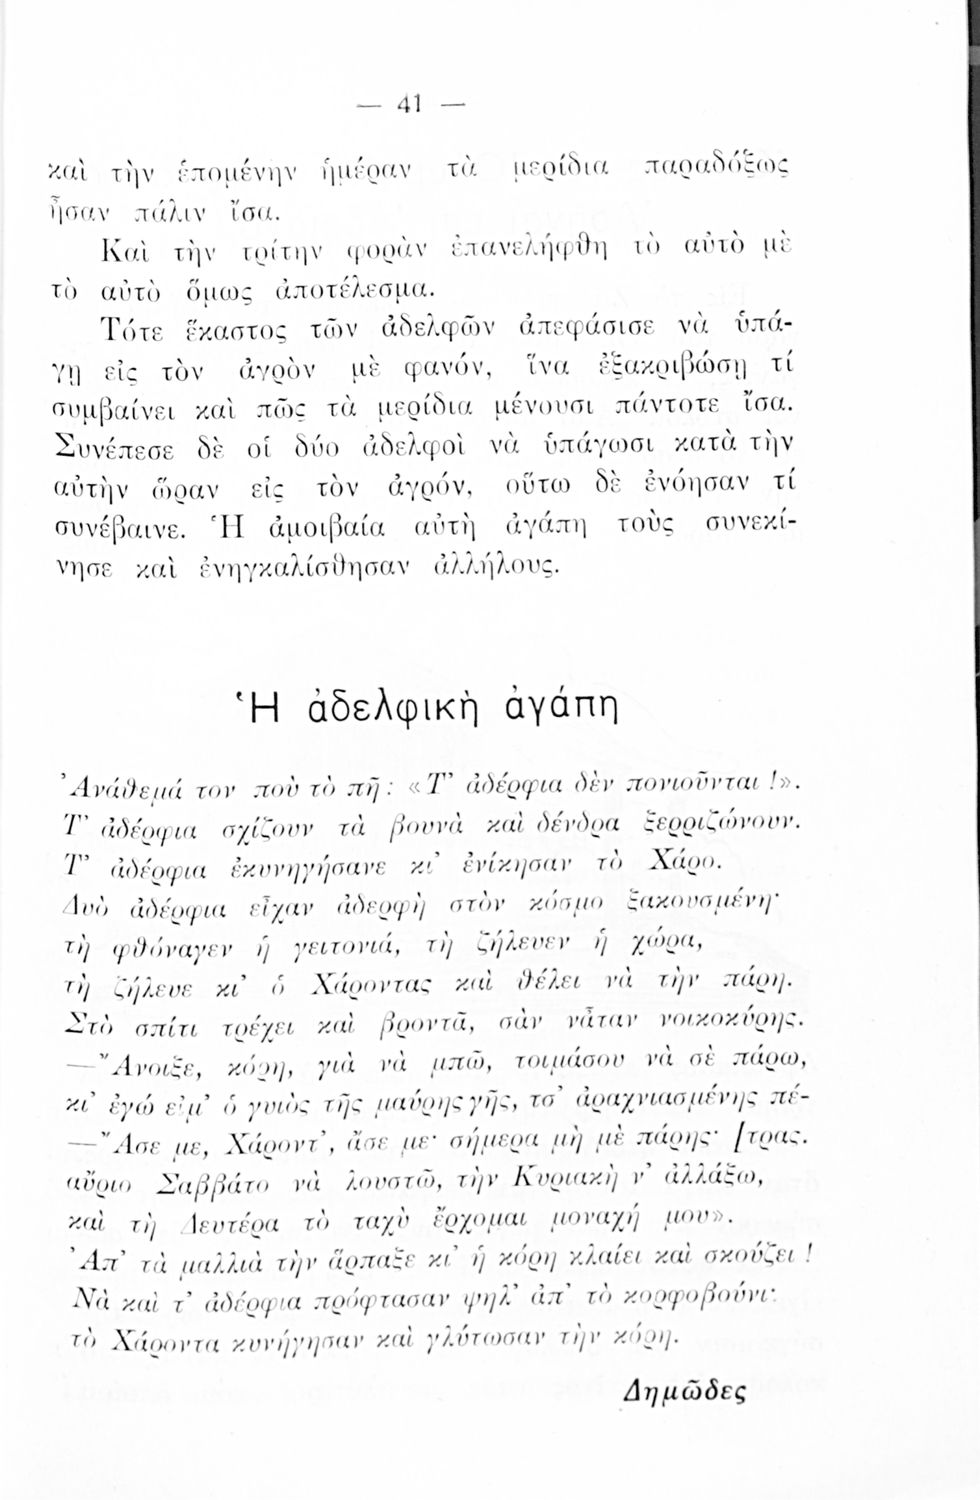 — 41 —
καὶ τὴν ἑπομένην ἡμέραν τὰ μερίδια παραδόξως
ἦσαν πάλιν ἴσα.
Καὶ τὴν τρίτην φορὰν ἐπανελήφθη τὸ αὐτὸ μὲ
τὸ αὐτὸ ὅμως ἀποτέλεσμα.
Τότε ἕκαστος τῶν ἀδελφῶν ἀπεφάσισε νὰ ὑπά-
γῃ εἰς τὸν ἀγρὸν μὲ φανόν, ἵνα ἐξακριβώσῃ τί
συμβαίνει καὶ πῶς τὰ μερίδια μένουσι πάντοτε ἴσα.
Συνέπεσε δὲ οἱ δύο ἀδελφοὶ νὰ ὑπάγωσι κατὰ τὴν
αὐτὴν ὥραν εἰς τὸν ἀγρόν, οὕτω δὲ ἐνόησαν τί
συνέβαινε. Ἡ ἀμοιβαία αὐτὴ ἀγάπη τοὺς συνεκί-
νησε καὶ ἐνηγκαλίσθησαν ἀλλήλους.
Ἡ ἀδελφικὴ ἀγάπη
Ἀνάθεμά τον ποὺ τὸ πῆ: «Τ' ἀδέρφια δὲν πονιοῦνται!».
Τ' ἀδέρφια σχίζουν τὰ βουνὰ καὶ δένδρα ξερριζώνουν.
Τ' ἀδέρφια ἐκυνηγήσανε κι' ἐνίκησαν τὸ Χάρο.
Δυὸ ἀδέρφια εἶχαν ἀδερφὴ στὸν κόσμο ξακουσμένη·
τὴ φθόναγεν ἡ γειτονιά, τὴ ζήλευεν ἡ χώρα,
τὴ ζήλευε κι' ὁ Χάροντας καὶ θέλει νὰ τὴν πάρη.
Στὸ σπίτι τρέχει καὶ βροντᾶ, σὰν νἆταν νοικοκύρης.
—Ἄνοιξε, κόρη, γιὰ νὰ μπῶ, τοιμάσου νὰ σὲ πάρω,
κι' ἐγώ εἰμ' ὁ γυιὸς τῆς μαύρης γῆς, τσ' ἀραχνιασμένης πέ-
—Ἄσε με, Χάροντ', ἄσε με· σήμερα μὴ μὲ πάρης· [τρας.
αὔριο Σαββάτο νὰ λουστῶ, τὴν Κυριακὴ ν' ἀλλάξω,
καὶ τὴ Δευτέρα τὸ ταχὺ ἔρχομαι μοναχή μου».
Ἀπ' τὰ μαλλιὰ τὴν ἅρπαξε κι' ἡ κόρη κλαίει καὶ σκούζει!
Νὰ καὶ τ' ἀδέρφια πρόφτασαν ψηλ' ἀπ' τὸ κορφοβούνι·
τὸ Χάροντα κυνήγησαν καὶ γλύτωσαν τὴν κόρη.
Δημῶδες